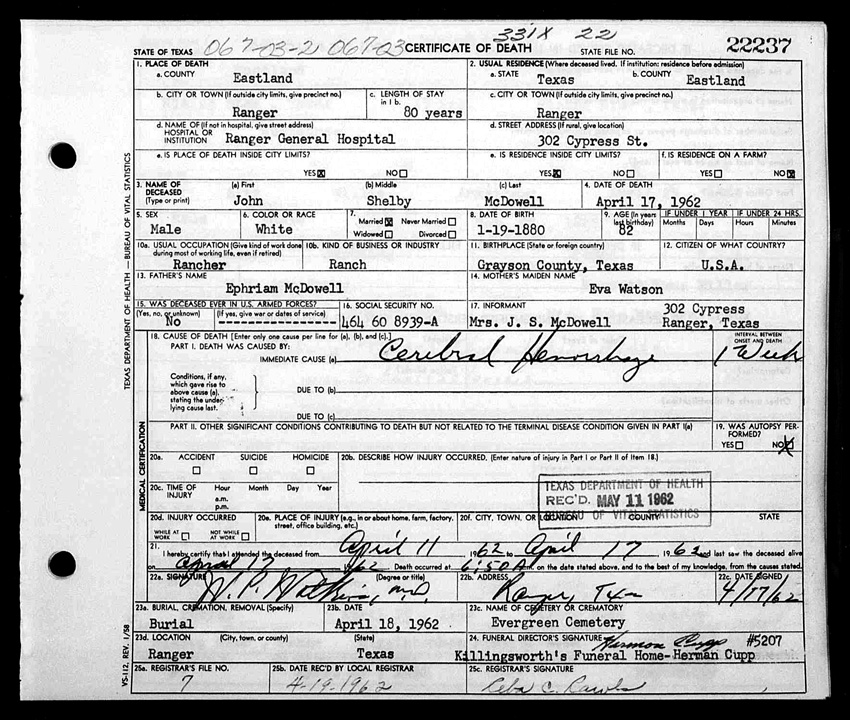 331X 22
STATE OF TEXAS 067-03-2 067-03 CERTIFICATE OF DEATH STATE FILE NO. 22237
1. PLACE OF DEATH
a. COUNTY
Eastland
2. USUAL RESIDENCE (Where deceased lived. If institution: residence before admission)
a. STATE Texas b. COUNTY Eastland
b. CITY OR TOWN (If outside city limits, give precinct no.)
Ranger
c. LENGTH OF STAY
in 1 b.
80 years
c. CITY OR TOWN (If outside city limits, give precinct no.)
Ranger
d. NAME OF (If not in hospital, give street address)
HOSPITAL OR
INSTITUTION Ranger General Hospital
d. STREET ADDRESS (If rural, give location)
302 Cypress St.
e. IS PLACE OF DEATH INSIDE CITY LIMITS?
YES☒ NO☐
e. IS RESIDENCE INSIDE CITY LIMITS?
YES☒ NO☐
f. IS RESIDENCE ON A FARM?
YES☐ NO☒
3. NAME OF
DECEASED
(Type or print)
(a) First (b) Middle (c) Last
John Shelby McDowell
4. DATE OF DEATH
April 17, 1962
5. SEX
Male
6. COLOR OR RACE
White
7.
Married☒ Never Married☐
Widowed☐ Divorced☐
8. DATE OF BIRTH
1-19-1880
9. AGE (In years
last birthday)
82
IF UNDER 1 YEAR IF UNDER 24 HRS.
Months Days Hours Minutes
10a. USUAL OCCUPATION (Give kind of work done
during most of working life, even if retired)
Rancher
10b. KIND OF BUSINESS OR INDUSTRY
Ranch
11. BIRTHPLACE (State or foreign country)
Grayson County, Texas
12. CITIZEN OF WHAT COUNTRY?
U.S.A.
13. FATHER'S NAME
Ephriam McDowell
14. MOTHER'S MAIDEN NAME
Eva Watson
15. WAS DECEASED EVER IN U.S. ARMED FORCES?
(Yes, no, or unknown) (If yes, give war or dates of service)
No ------------------
16. SOCIAL SECURITY NO.
464 60 8939-A
17. INFORMANT
Mrs. J. S. McDowell
302 Cypress
Ranger, Texas
18. CAUSE OF DEATH [Enter only one cause per line for (a), (b), and (c).]
PART I. DEATH WAS CAUSED BY:
IMMEDIATE CAUSE (a) Cerebral Hemorrhage
INTERVAL BETWEEN
ONSET AND DEATH
1 Week
Conditions, if any,
which gave rise to
above cause (a),
stating the under-
lying cause last.
DUE TO (b)
DUE TO (c)
PART II. OTHER SIGNIFICANT CONDITIONS CONTRIBUTING TO DEATH BUT NOT RELATED TO THE TERMINAL DISEASE CONDITION GIVEN IN PART I(a)
19. WAS AUTOPSY PER-
FORMED?
YES☐ NO☒
20a. ACCIDENT SUICIDE HOMICIDE
☐ ☐ ☐
20b. DESCRIBE HOW INJURY OCCURRED. (Enter nature of injury in Part I or Part II of Item 18.)
20c. TIME OF
INJURY
Hour Month Day Year
a.m.
p.m.
TEXAS DEPARTMENT OF HEALTH
REC'D. MAY 11 1962
BUREAU OF VITAL STATISTICS
20d. INJURY OCCURRED
WHILE AT
WORK ☐
NOT WHILE
AT WORK ☐
20e. PLACE OF INJURY (e.g., in or about home, farm, factory,
street, office building, etc.)
20f. CITY, TOWN, OR LOCATION COUNTY STATE
21.
I hereby certify that I attended the deceased from April 11, 1962 to April 17, 1962 and last saw the deceased alive
on April 17 1962 Death occurred at 6:50 A m. on the date stated above, and to the best of my knowledge, from the causes stated.
22a. SIGNATURE (Degree or title)
W. P. Watkins, M.D.
22b. ADDRESS
Ranger, Tex
22c. DATE SIGNED
4/17/62
23a. BURIAL, CREMATION, REMOVAL (Specify)
Burial
23b. DATE
April 18, 1962
23c. NAME OF CEMETERY OR CREMATORY
Evergreen Cemetery
23d. LOCATION (City, town, or county) (State)
Ranger Texas
24. FUNERAL DIRECTOR'S SIGNATURE Herman Cupp #5207
Killingsworth's Funeral Home-Herman Cupp
25a. REGISTRAR'S FILE NO.
7
25b. DATE REC'D BY LOCAL REGISTRAR
4-19-1962
25c. REGISTRAR'S SIGNATURE
TEXAS DEPARTMENT OF HEALTH — BUREAU OF VITAL STATISTICS
MEDICAL CERTIFICATION
VS-112, REV. 1/58